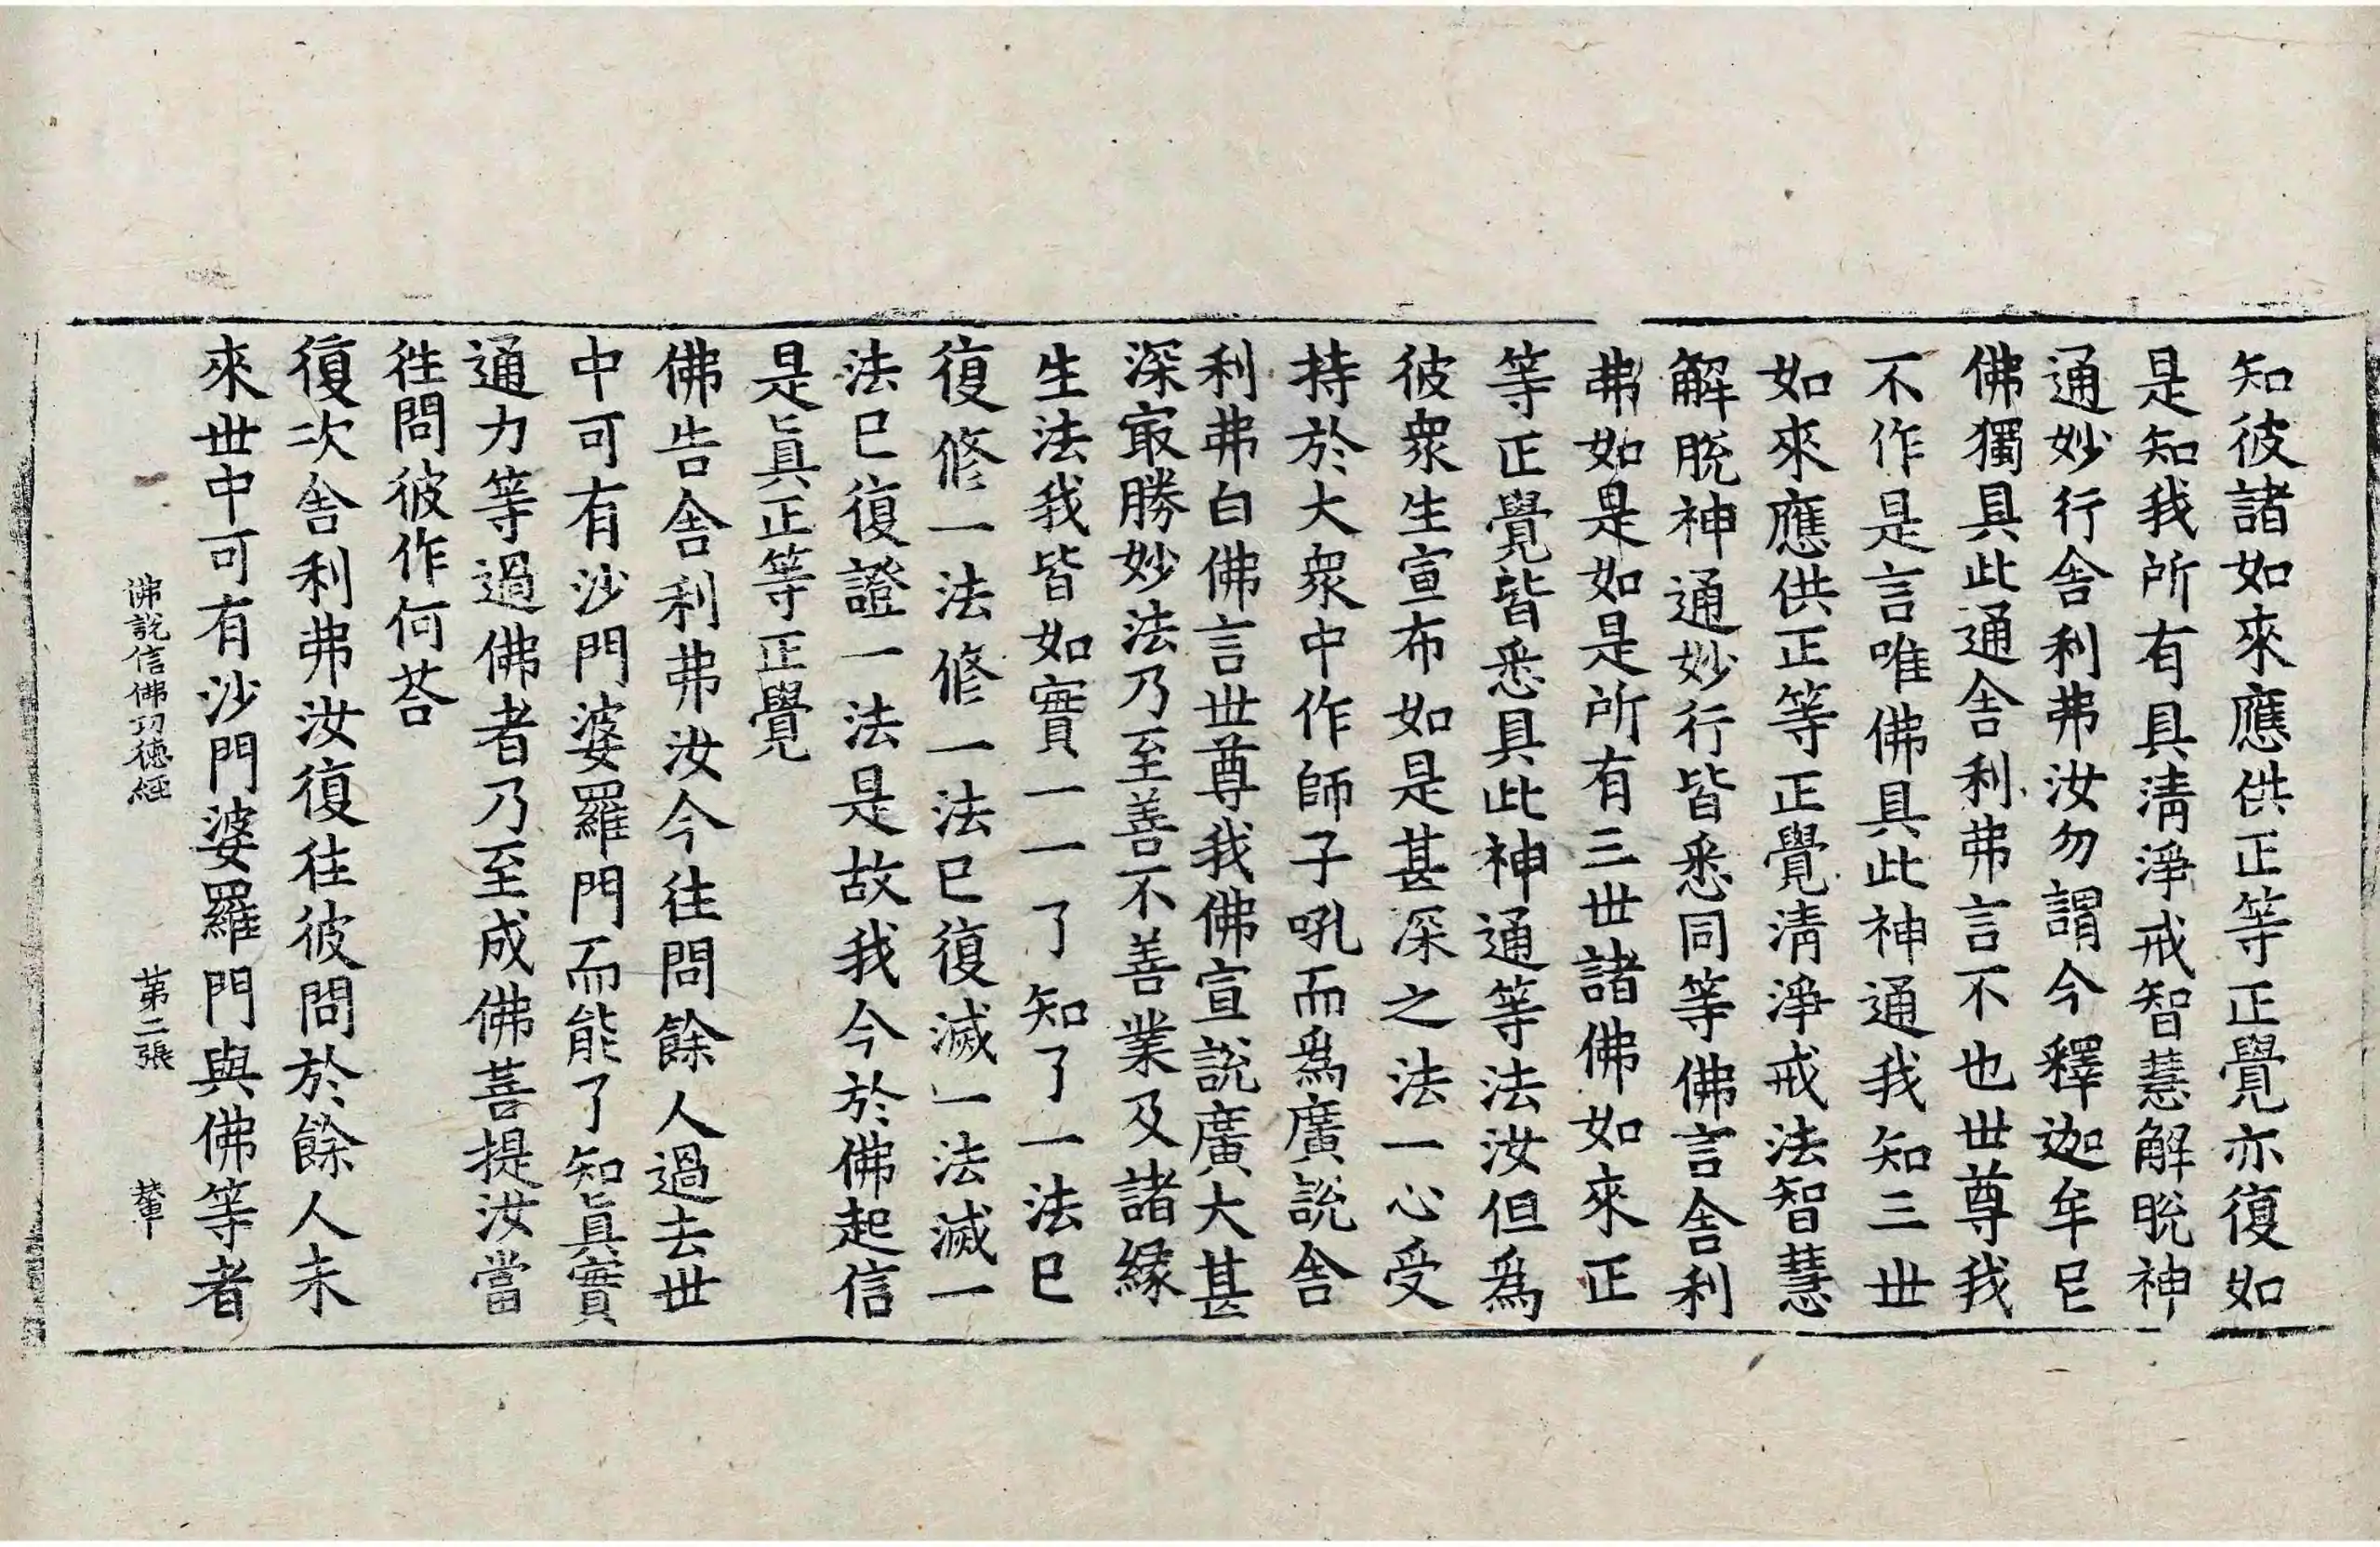 知彼諸如來應供正等正覺亦復如
是知我所有具淸淨戒智慧解脫神
通妙行舎利弗汝勿謂今釋迦牟尼
佛獨具此通舎利弗言不也世尊我
不作是言唯佛具此神通我知三世
如來應供正等正覺淸淨戒法智慧
解脫神通妙行皆悉同等佛言舎利
弗如是如是所有三世諸佛如來正
等正覺皆悉具此神通等法汝但爲
彼衆生宣布如是甚深之法一心受
持於大衆中作師子吼而爲廣說舎
利弗白佛言世尊我佛宣說廣大甚
深㝡勝妙法乃至善不善業及諸緣
生法我皆如實一一了知了一法已
復修一法修一法已復滅一法滅一
法已復證一法是故我今於佛起信
是眞正等正覺
佛告舎利弗汝今往問餘人過去世
中可有沙門婆羅門而能了知眞實
通力等過佛者乃至成佛菩提汝當
徃問彼作何荅
復次舎利弗汝復往彼問於餘人未
來世中可有沙門婆羅門與佛等者
佛說信佛功德經 第二張 輦